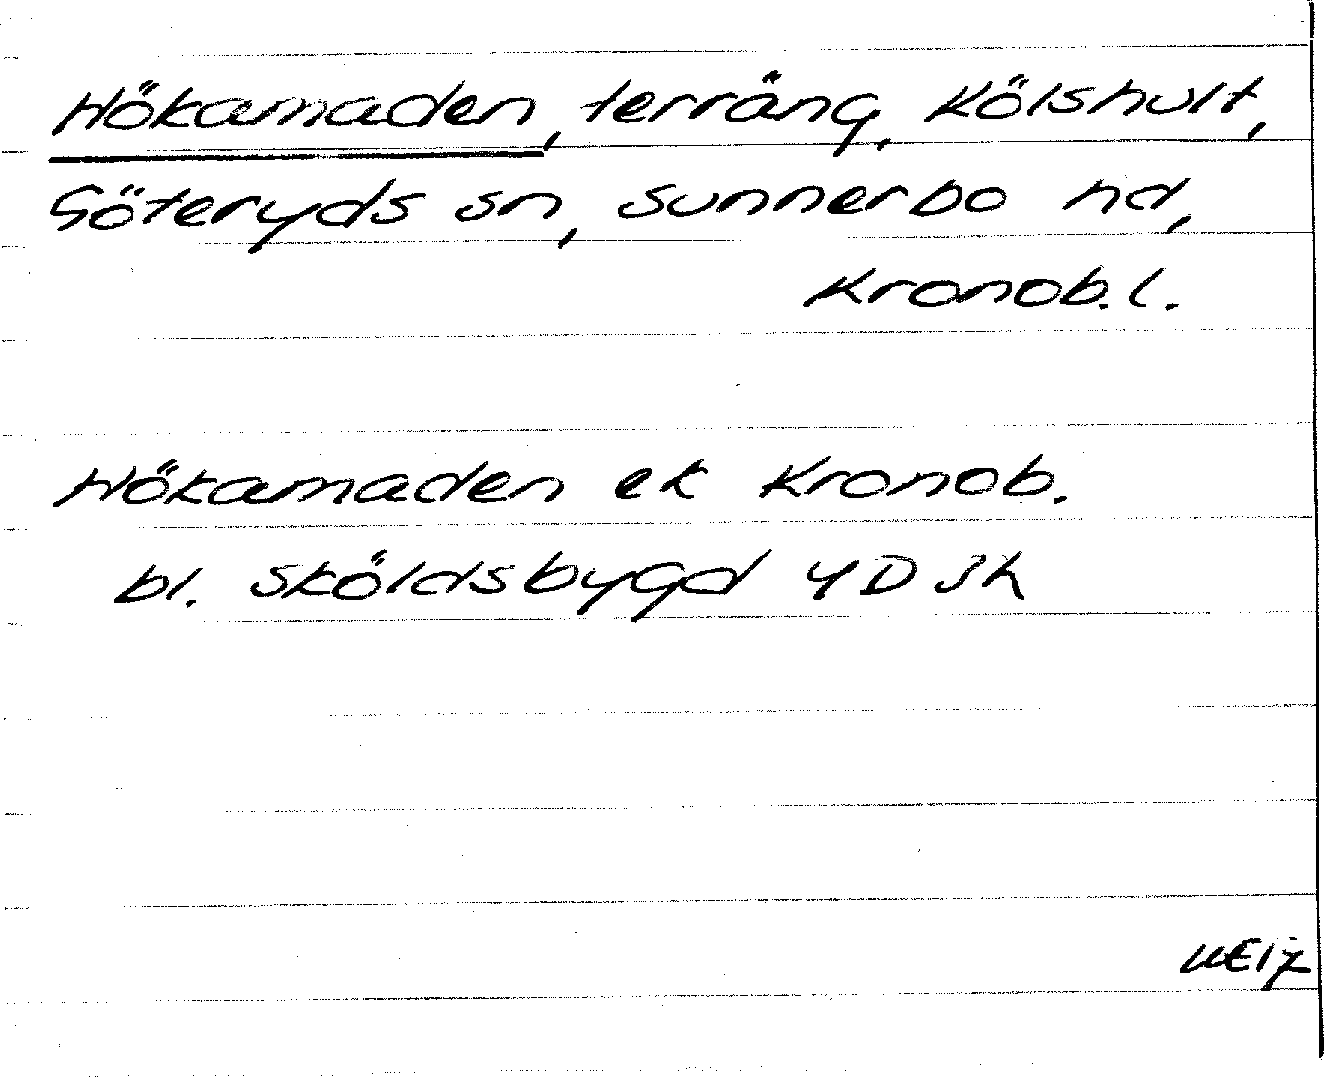 Hökamaden, terräng, Kölshult,
Göteryds sn, Sunnerbo hd,
Kronob. l.
Hökamaden ek Kronob.
bl. Sköldsbygd 4D 3h